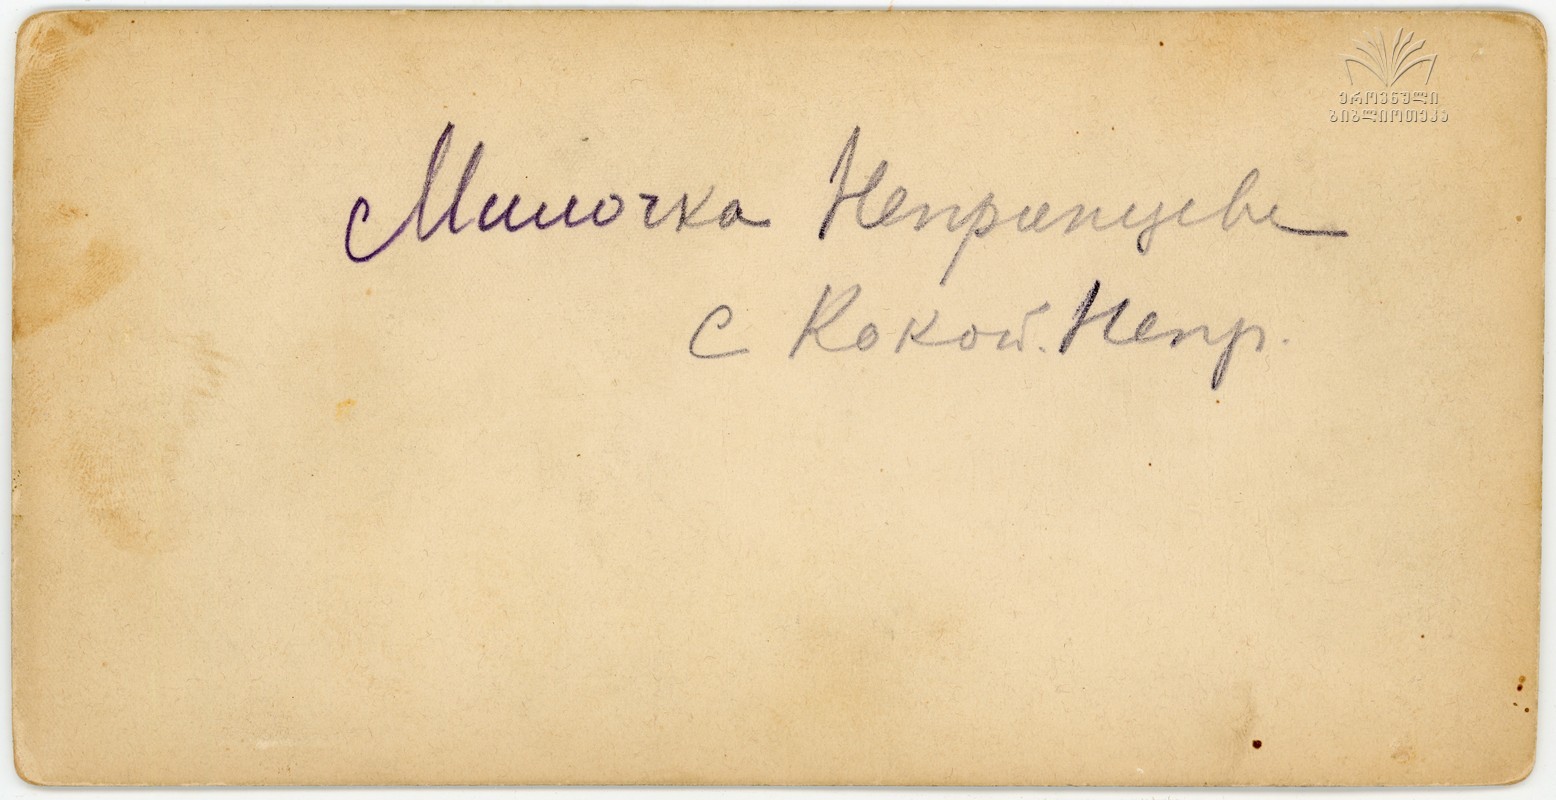 ეროვნული
ბიბლიოთეკა
Милочка Непранцева
с Кокой. Непр.